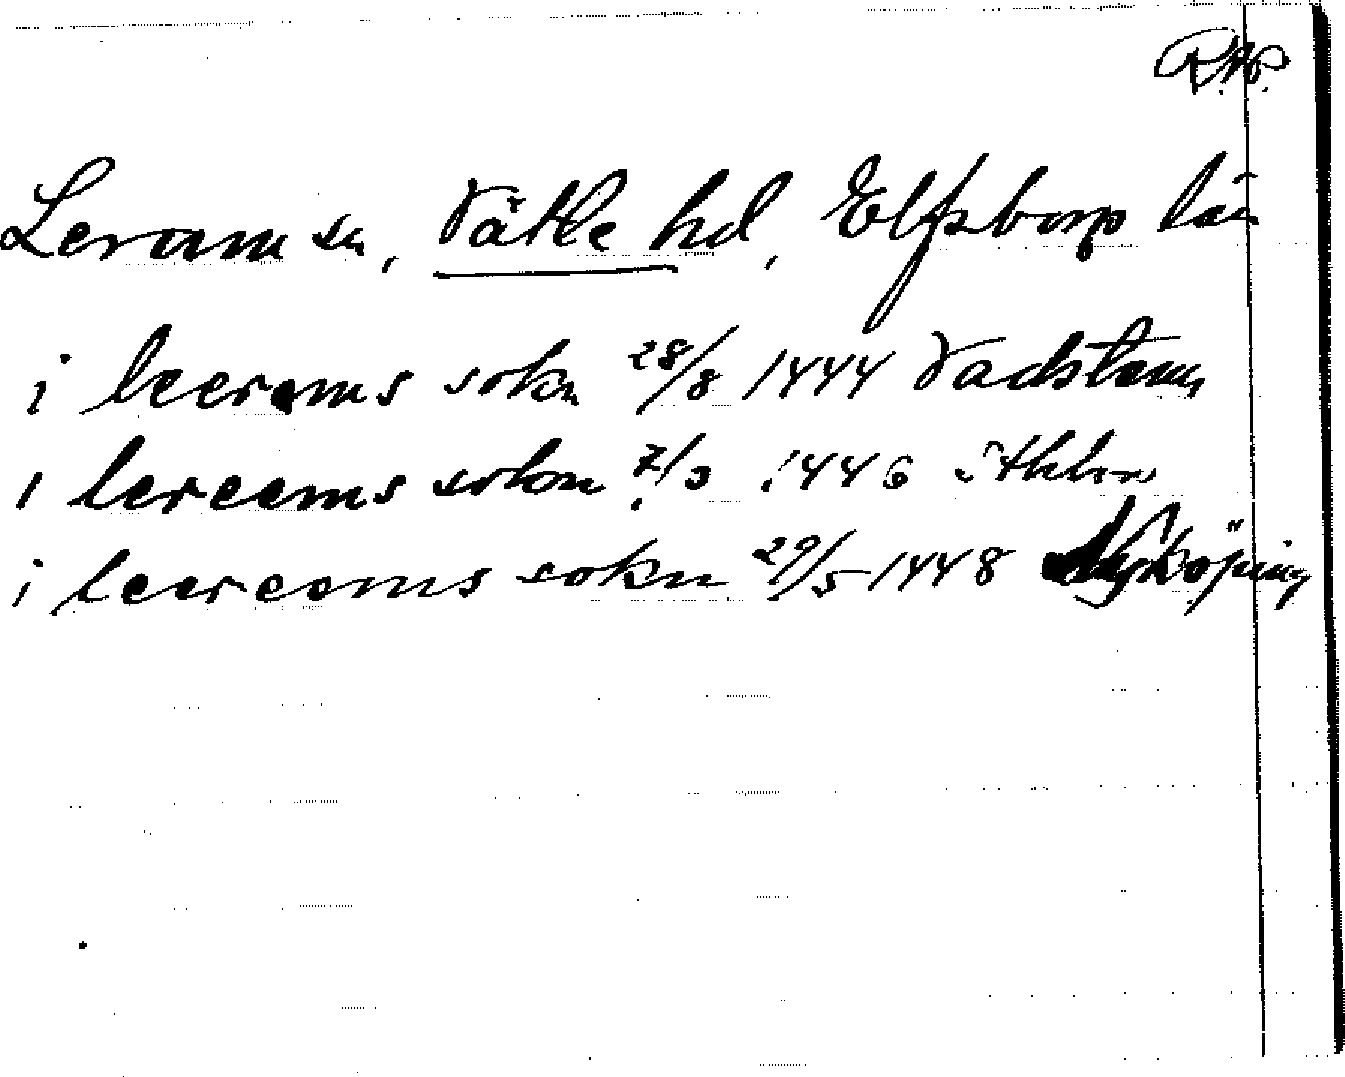 R.A.P.
Lerum sn, Vätle hd, Elfsborgs län
i leerems sokn 28/8 1444 Vadstena
i lereems sokn 7/3 1446 Sthlm
i leereems sokn 29/5 1448 Nyköping